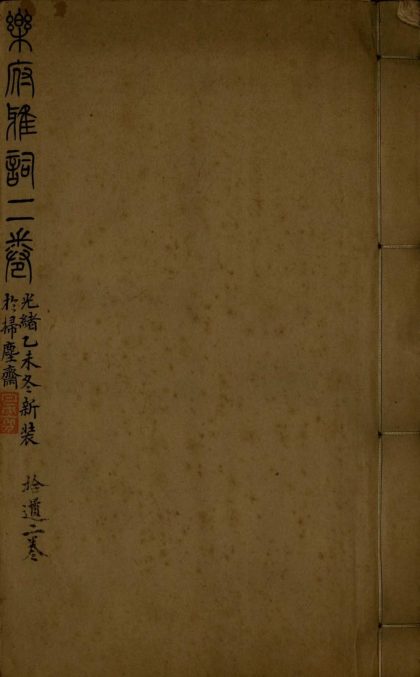 樂府雅詞二卷
光緒乙未冬新裝
於掃塵齋
拾遺二卷